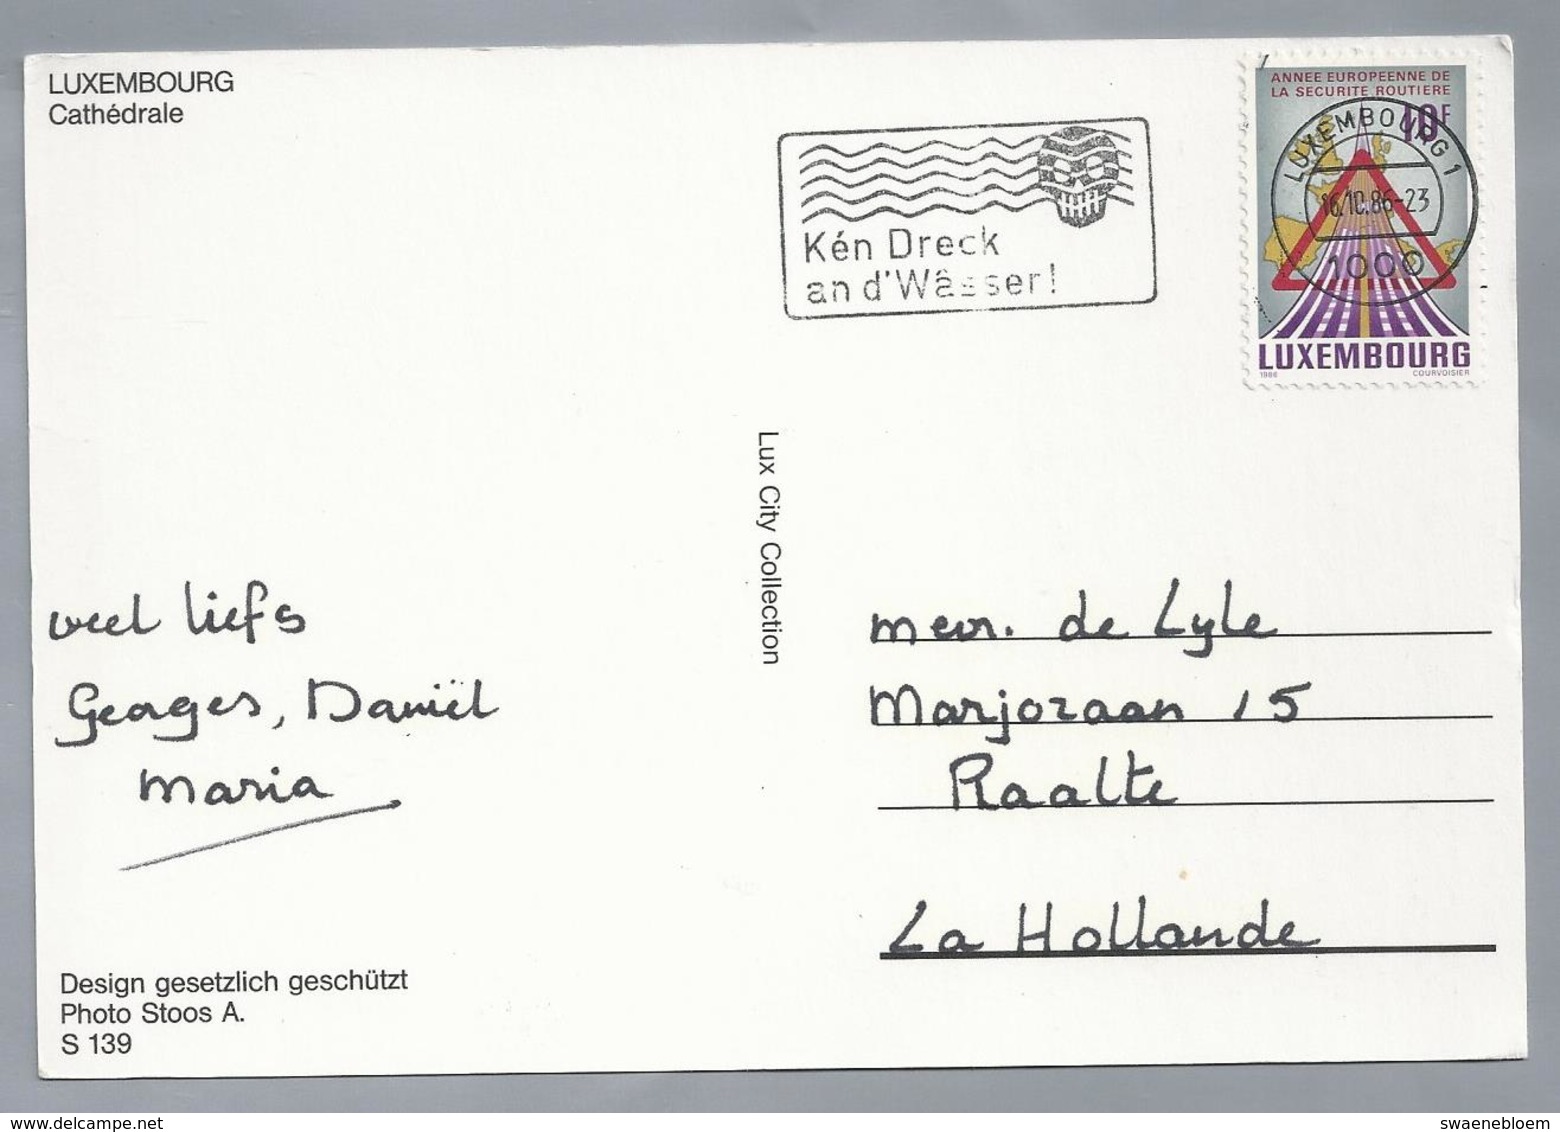 LUXEMBOURG
Cathédrale
Kén Dreck
an d'Wâsser!
ANNEE EUROPEENNE DE
LA SECURITE ROUTIERE
10F
LUXEMBOURG 1
16.10.86-23
1000
LUXEMBOURG
1986 COURVOISIER
Lux City Collection
veel liefs
Georges, Daniël
Maria
mevr. de Lyle
Marjozaan 15
Raalte
La Hollande
Design gesetzlich geschützt
Photo Stoos A.
S 139
swaenebloem